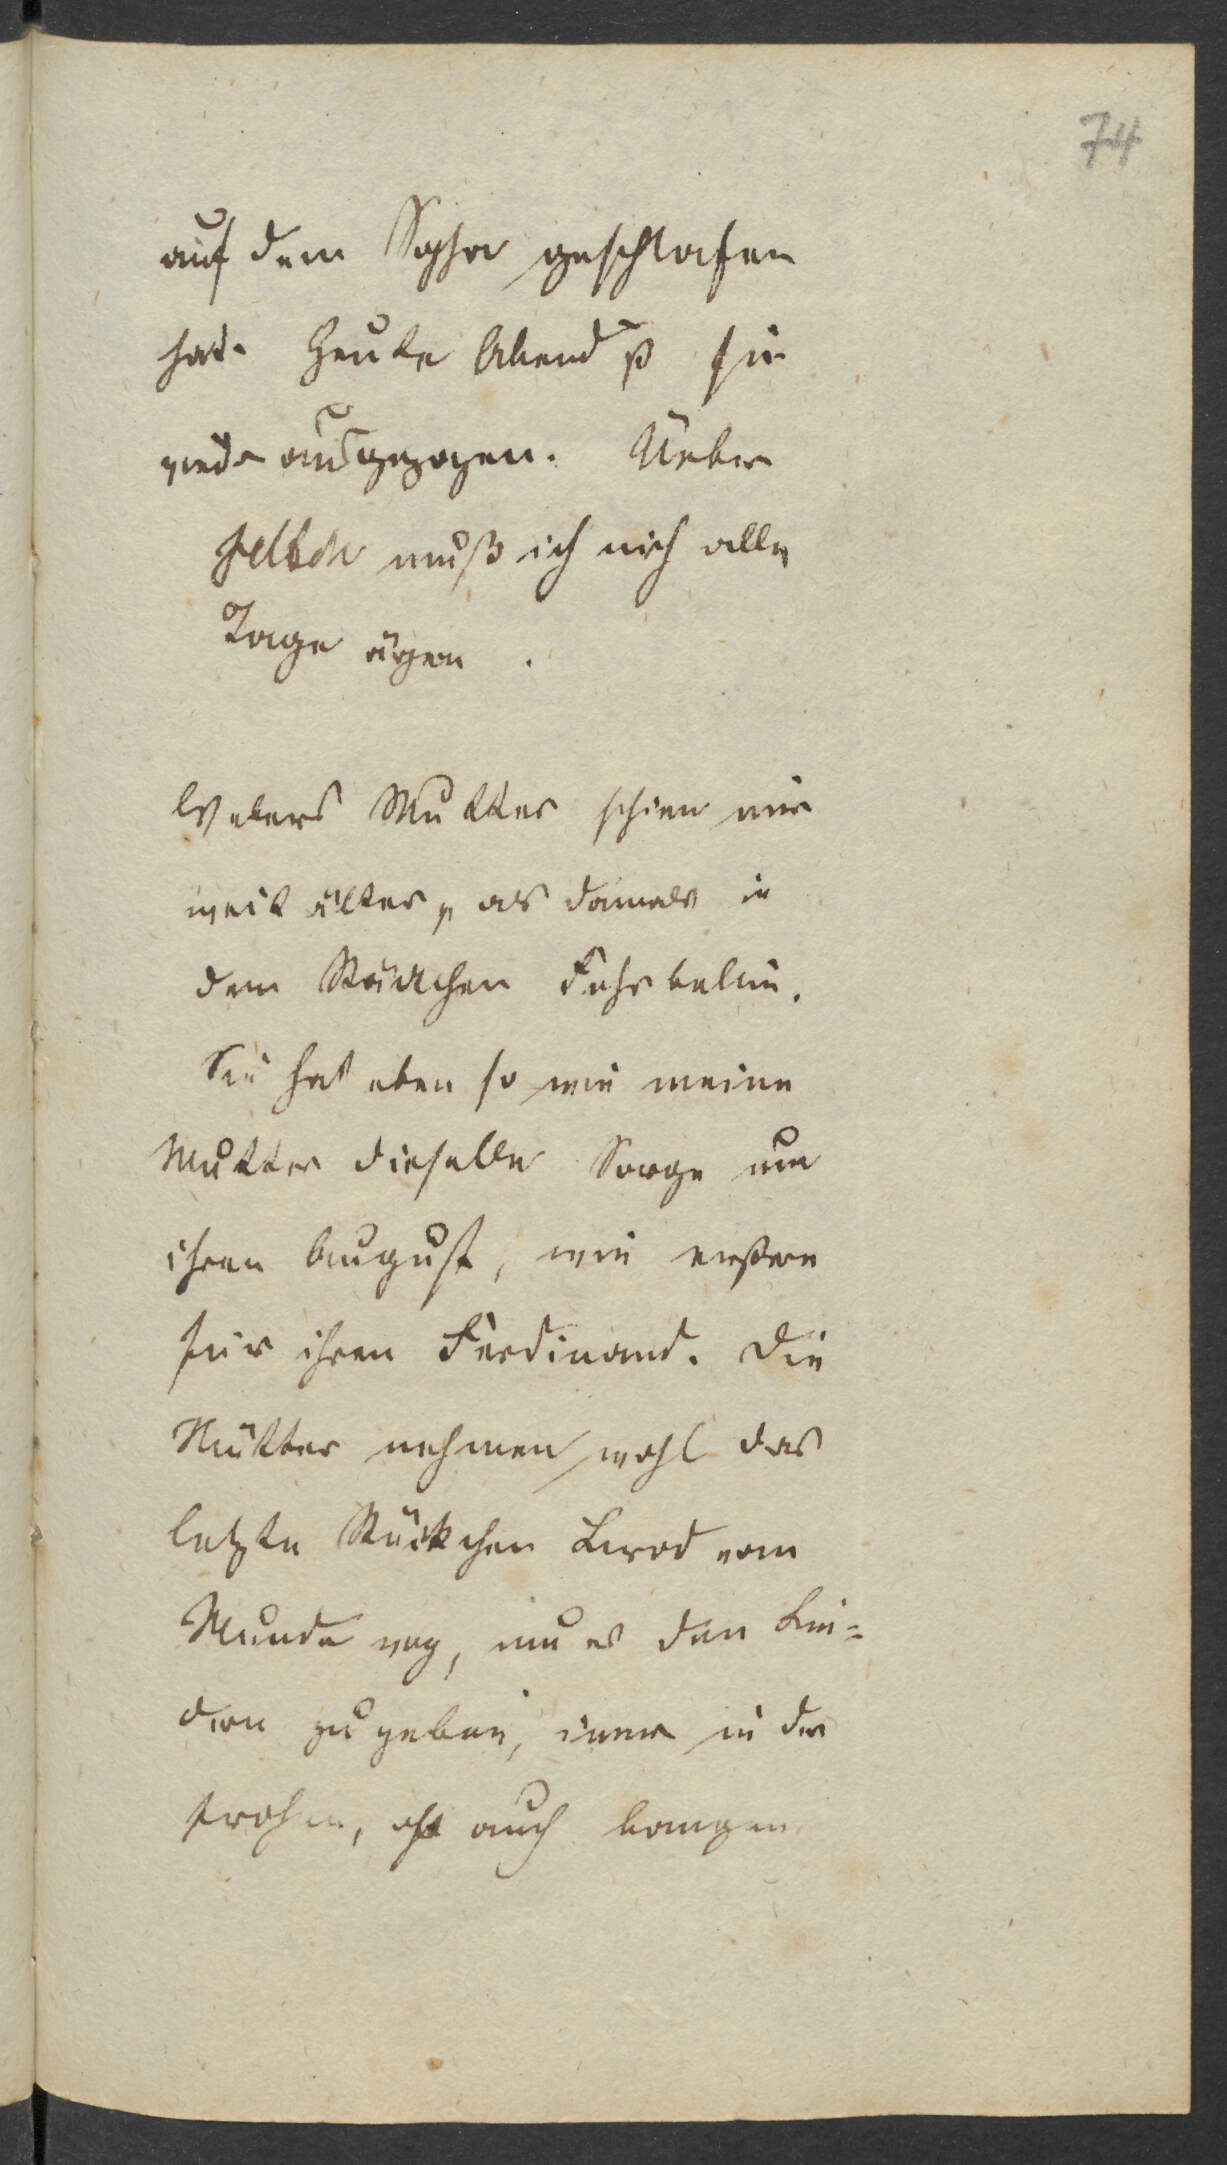 74
auf dem Sopha geschlafen
hat. Heute Abend ist sie
wieder ausgezogen. Ueber
muß ich mich alle
Tage ärgern.
Webers Mutter schien mir
weit älter, als damals in
dem Städtchen Fehrbellin.
Sie hat eben so wie meine
Mutter dieselbe Sorge um
ihren August, wie erstere
für ihren Ferdinand. Die
Mütter nehmen wohl das
letzte Stückchen Brod vom
Munde weg, um es den Kin=
dern zu geben, immer in der
frohen, oft auch bangen